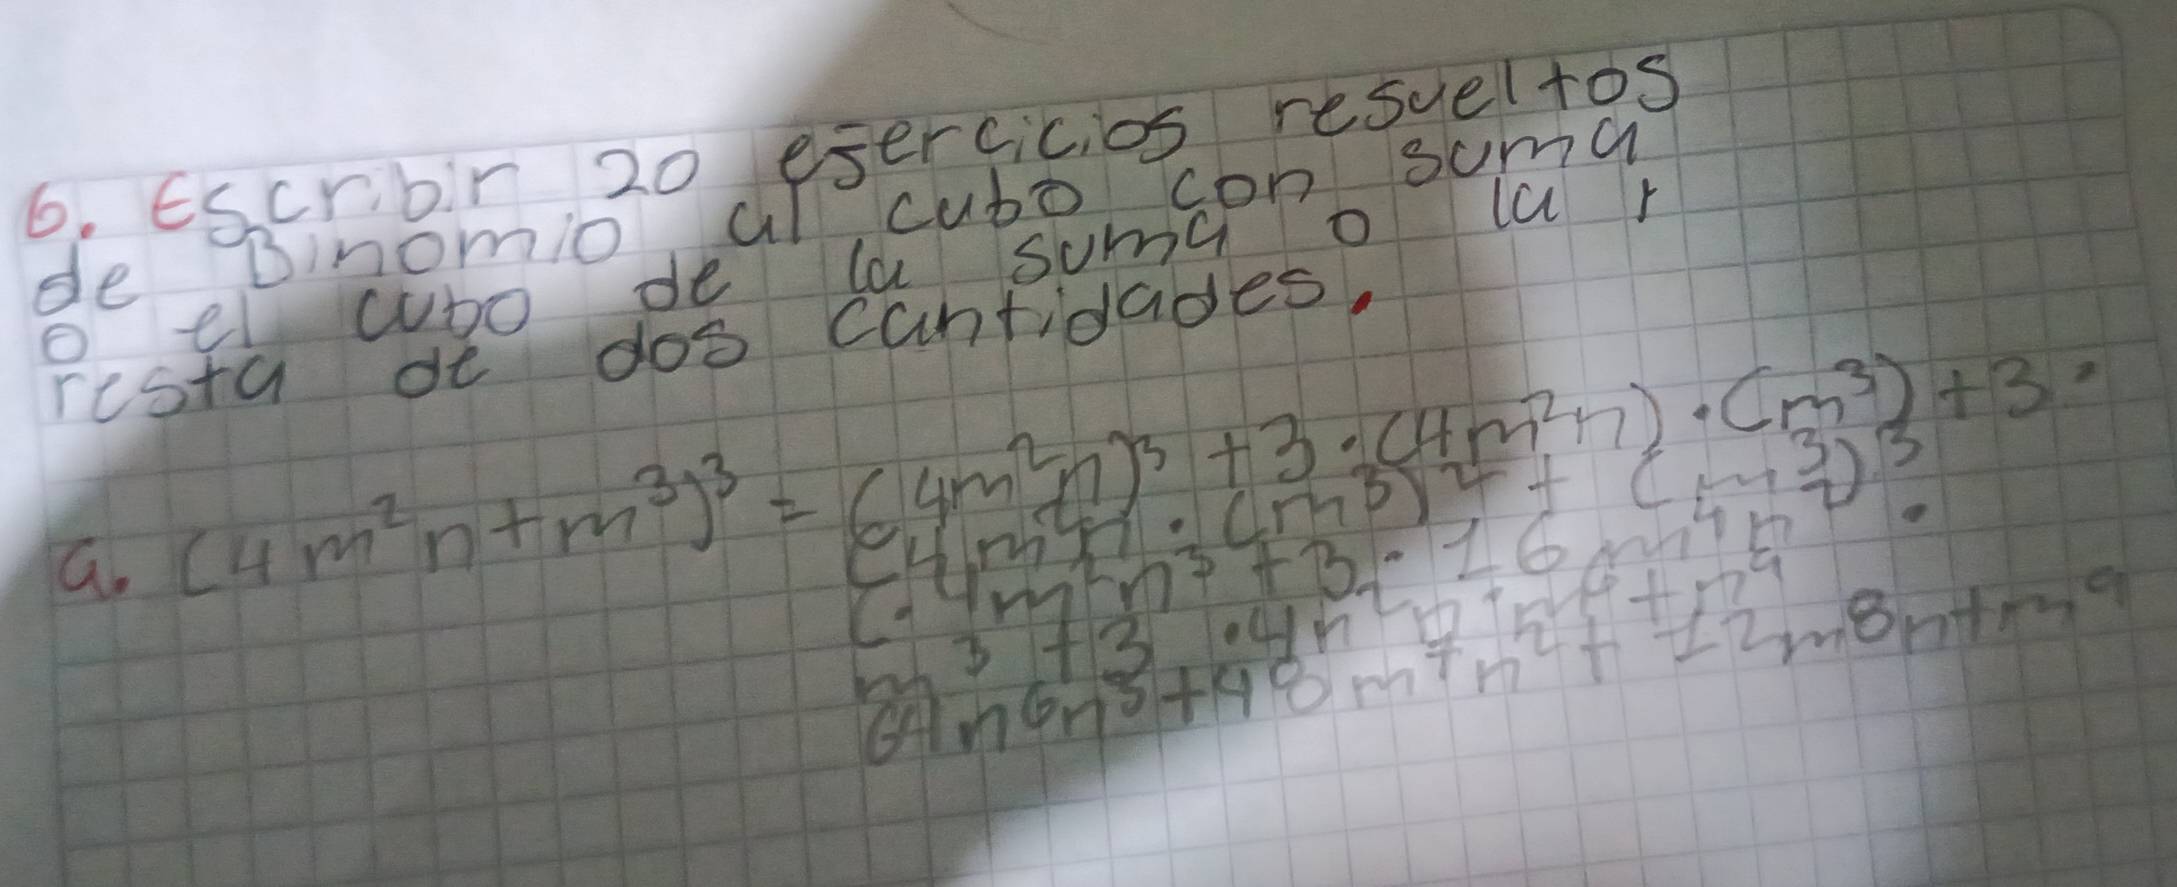 6. Escribir 20 ejercicios resueltos
de Binomio al cubo con suma
o el cubo de la suma o la r
resta de dos cantidades.
a. (4m²n+m³)³ = (4m²n)³ +3·(4m²n)·(m³)+3·
(4m²n·(m³)²+(m³)³
(·4m²n³+3·16m⁴n²·
m³+3·4n²n·m⁶+n⁹
64n⁶n³+48m⁷n²+12m⁸n+m⁹